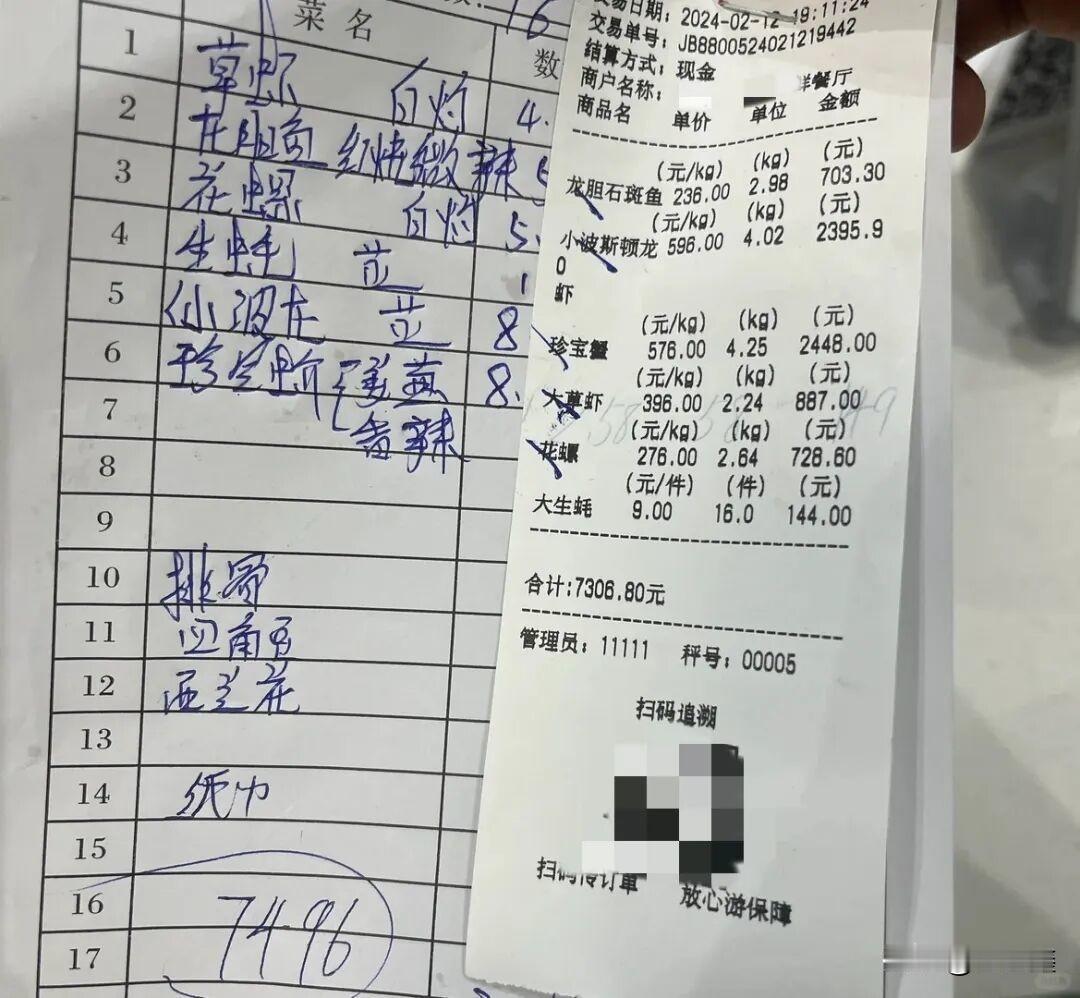 菜名
数
16
1 草虾 白灼 4.
2 龙胆 红烧微辣
3 花螺 白灼 5.
4 生蚝 1
5 小波龙 8
6 珍宝蟹 8.
7 香辣
8
9
10 排骨
11 四角豆
12 西兰花
13
14 纸巾
15
16
17
7496
交易日期: 2024-02-12 19:11:24
交易单号: JB8800524021219442
结算方式: 现金
商户名称: 餐厅
商品名 单价 单位 金额
(元/kg) (kg) (元)
龙胆石斑鱼 236.00 2.98 703.30
(元/kg) (kg) (元)
小波斯顿龙 596.00 4.02 2395.9
0
虾
(元/kg) (kg) (元)
珍宝蟹 576.00 4.25 2448.00
(元/kg) (kg) (元)
大草虾 396.00 2.24 887.00
(元/kg) (kg) (元)
花螺 276.00 2.64 728.60
(元/件) (件) (元)
大生蚝 9.00 16.0 144.00
合计:7306.80元
管理员: 11111 秤号: 00005
扫码追溯
扫码传订单 放心游保障